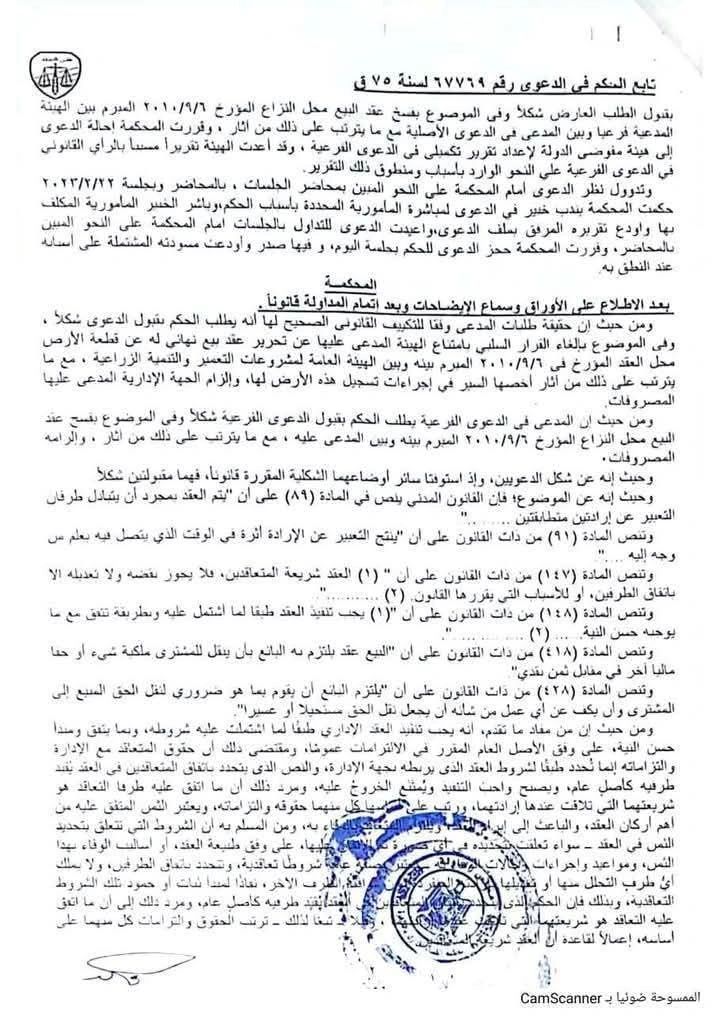 تابع الحكم في الدعوى رقم ٦٧٧٦٩ لسنة ٧٥ ق
بقبول الطلب العارض شكلاً وفى الموضوع بفسخ عقد البيع محل النزاع المؤرخ ٢٠١٠/٩/٦ المبرم بين الهيئة
المدعية فرعيا وبين المدعى في الدعوى الأصلية مع ما يترتب على ذلك من آثار ، وقررت المحكمة إحالة الدعوى
إلى هيئة مفوضى الدولة لإعداد تقرير تكميلى فى الدعوى الفرعية ، وقد أعدت الهيئة تقريراً مسبباً بالرأي القانوني
في الدعوى الفرعية علي النحو الوارد بأسباب ومنطوق ذلك التقرير.
وتدوول نظر الدعوى أمام المحكمة على النحو المبين بمحاضر الجلسات ، بالمحاضر وبجلسة ٢٠٢٣/٢/٢٢
حكمت المحكمة بندب خبير في الدعوى لمباشرة المأمورية المحددة بأسباب الحكم،وباشر الخبير المأمورية المكلف
بها وأودع تقريره المرفق بملف الدعوى،واعيدت الدعوى للتداول بالجلسات امام المحكمة على النحو المبين
بالمحاضر، وقررت المحكمة حجز الدعوى للحكم بجلسة اليوم، و فيها صدر وأودعت مسودته المشتملة على أسبابه
عند النطق به.
المحكمة
بعد الاطلاع على الأوراق وسماع الإيضاحات وبعد اتمام المداولة قانوناً .
ومن حيث إن حقيقة طلبات المدعى وفقا للتكييف القانونى الصحيح لها أنه يطلب الحكم بقبول الدعوى شكلاً ،
وفى الموضوع بإلغاء القرار السلبي بامتناع الهيئة المدعى عليها عن تحرير عقد بيع نهائى له عن قطعة الأرض
محل العقد المؤرخ فى ٢٠١٠/٩/٦ المبرم بينه وبين الهيئة العامة لمشروعات التعمير والتنمية الزراعية ، مع ما
يترتب على ذلك من آثار أخصها السير في إجراءات تسجيل هذه الأرض لها، وإلزام الجهة الإدارية المدعى عليها
المصروفات.
ومن حيث إن المدعى فى الدعوى الفرعية يطلب الحكم بقبول الدعوى الفرعية شكلاً وفى الموضوع بفسخ عقد
البيع محل النزاع المؤرخ ٢٠١٠/٩/٦ المبرم بينه وبين المدعى عليه ، مع ما يترتب على ذلك من آثار ، وإلزامه
المصروفات.
وحيث إنه عن شكل الدعويين، وإذ استوفتا سائر أوضاعهما الشكلية المقررة قانوناً، فهما مقبولتين شكلاً
وحيث إنه عن الموضوع؛ فإن القانون المدني ينص في المادة (٨٩) على أن "يتم العقد بمجرد أن يتبادل طرفان
التعبير عن إرادتين متطابقتين ........".
وتنص المادة (٩١) من ذات القانون على أن "ينتج التعبير عن الإرادة أثرة في الوقت الذي يتصل فيه بعلم من
وجه إليه ....".
وتنص المادة (١٤٧) من ذات القانون على أن " (١) العقد شريعة المتعاقدين، فلا يجوز نقضه ولا تعديله الا
باتفاق الطرفين، او للأسباب التي يقررها القانون. (٢) ..........".
وتنص المادة (١٤٨) من ذات القانون على أن "(١) يجب تنفيذ العقد طبقا لما أشتمل عليه وبطريقة تتفق مع ما
يوجبه حسن النية. ... (٢) ..............".
وتنص المادة (٤١٨) من ذات القانون على أن "البيع عقد يلتزم به البائع بأن ينقل للمشترى ملكية شيء أو حقا
ماليا آخر في مقابل ثمن نقدي".
وتنص المادة (٤٢٨) من ذات القانون على أن "يلتزم البائع أن يقوم بما هو ضروري لنقل الحق المبيع إلى
المشترى وأن يكف عن أي عمل من شأنه أن يجعل نقل الحق مستحيلا أو عسيرا".
ومن حيث إن من مفاد ما تقدم، أنه يجب تنفيذ العقد الاداري طبقًا لما اشتملت عليه شروطه، وبما يتفق ومبدأ
حسن النية، على وفق الأصل العام المقرر في الالتزامات عمومًا، ومقتضى ذلك أن حقوق المتعاقد مع الإدارة
والتزاماته إنما تُحدد طبقًا لشروط العقد الذى يربطه بجهة الإدارة، والنص الذى يتحدد باتفاق المتعاقدين في العقد يُقيد
طرفيه كأصلٍ عام، ويصبح واجب التنفيذ ويُمتنع الخروج عليه، ومرد ذلك أن ما اتفق عليه طرفا التعاقد هو
شريعتهما التى تلاقت عندها إرادتهما، ورتب على أساسها كل منهما حقوقه والتزاماته، ويعتبر الثمن المتفق عليه من
أهم أركان العقد، والباعث إلى به، ومن المسلم به أن الشروط التى تتعلق بتحديد
الثمن في العقد ـ سواء تعلقت بتحديده في أى صورة عليها، على وفق طبيعة العقد، أو أساليب الوفاء بهذا
الثمن، ومواعيد وإجراءات شروطًا تعاقدية، وتتحدد باتفاق الطرفين، ولا يملك
أىُ طرفٍ التحلل منها أو تعديلها الطرف الآخر، نفاذًا لمبدأ ثبات أو جمود تلك الشروط
التعاقدية، وبذلك فإن الحكم الذى يتحدد العقد يُقيد طرفيه كأصلٍ عام، ومرد ذلك إلى أن ما اتفق
عليه التعاقد هو شريعتهما التى تبعًا لذلك ـ ترتبت الحقوق والتزامات كل منهما على
أساسه، إعمالاً لقاعدة أن العقد شريعة المتعاقدين.
الممسوحة ضوئيا بـ CamScanner